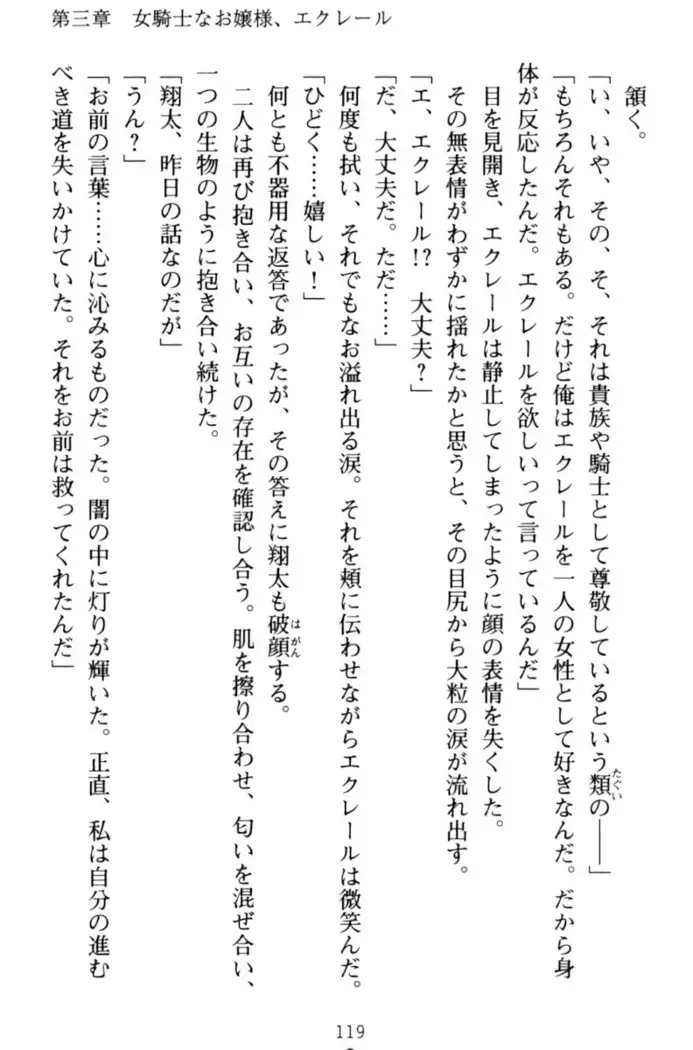 第三章　女騎士なお嬢様、エクレール
頷く。
「い、いや、その、そ、それは貴族や騎士として尊敬しているという類の――」
たぐい
「もちろんそれもある。だけど俺はエクレールを一人の女性として好きなんだ。だから身
体が反応したんだ。エクレールを欲しいって言っているんだ」
目を見開き、エクレールは静止してしまったように顔の表情を失くした。
その無表情がわずかに揺れたかと思うと、その目尻から大粒の涙が流れ出す。
「エ、エクレール!?　大丈夫？」
「だ、大丈夫だ。ただ……」
何度も拭い、それでもなお溢れ出る涙。それを頬に伝わせながらエクレールは微笑んだ。
「ひどく……嬉しい！」
何とも不器用な返答であったが、その答えに翔太も破顔する。
はがん
二人は再び抱き合い、お互いの存在を確認し合う。肌を擦り合わせ、匂いを混ぜ合い、
一つの生物のように抱き合い続けた。
「翔太、昨日の話なのだが」
「うん？」
「お前の言葉……心に沁みるものだった。闇の中に灯りが輝いた。正直、私は自分の進む
べき道を失いかけていた。それをお前は救ってくれたんだ」
119